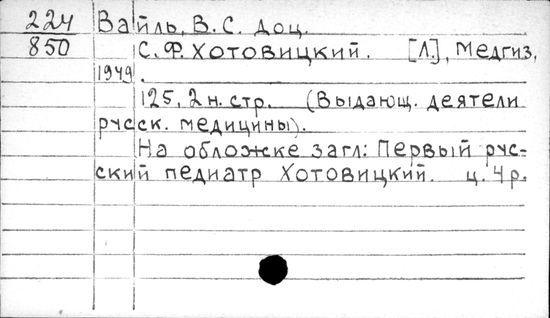 224 Вайль, В.С. Доц.
850 С.Ф. Хотовицкий. [Л.], Медгиз,
1949.
125, 2 н. стр. (Выдающ. деятели
русск. медицины).
На обложке загл: Первый рус-
ский педиатр Хотовицкий. ц. 4 р.